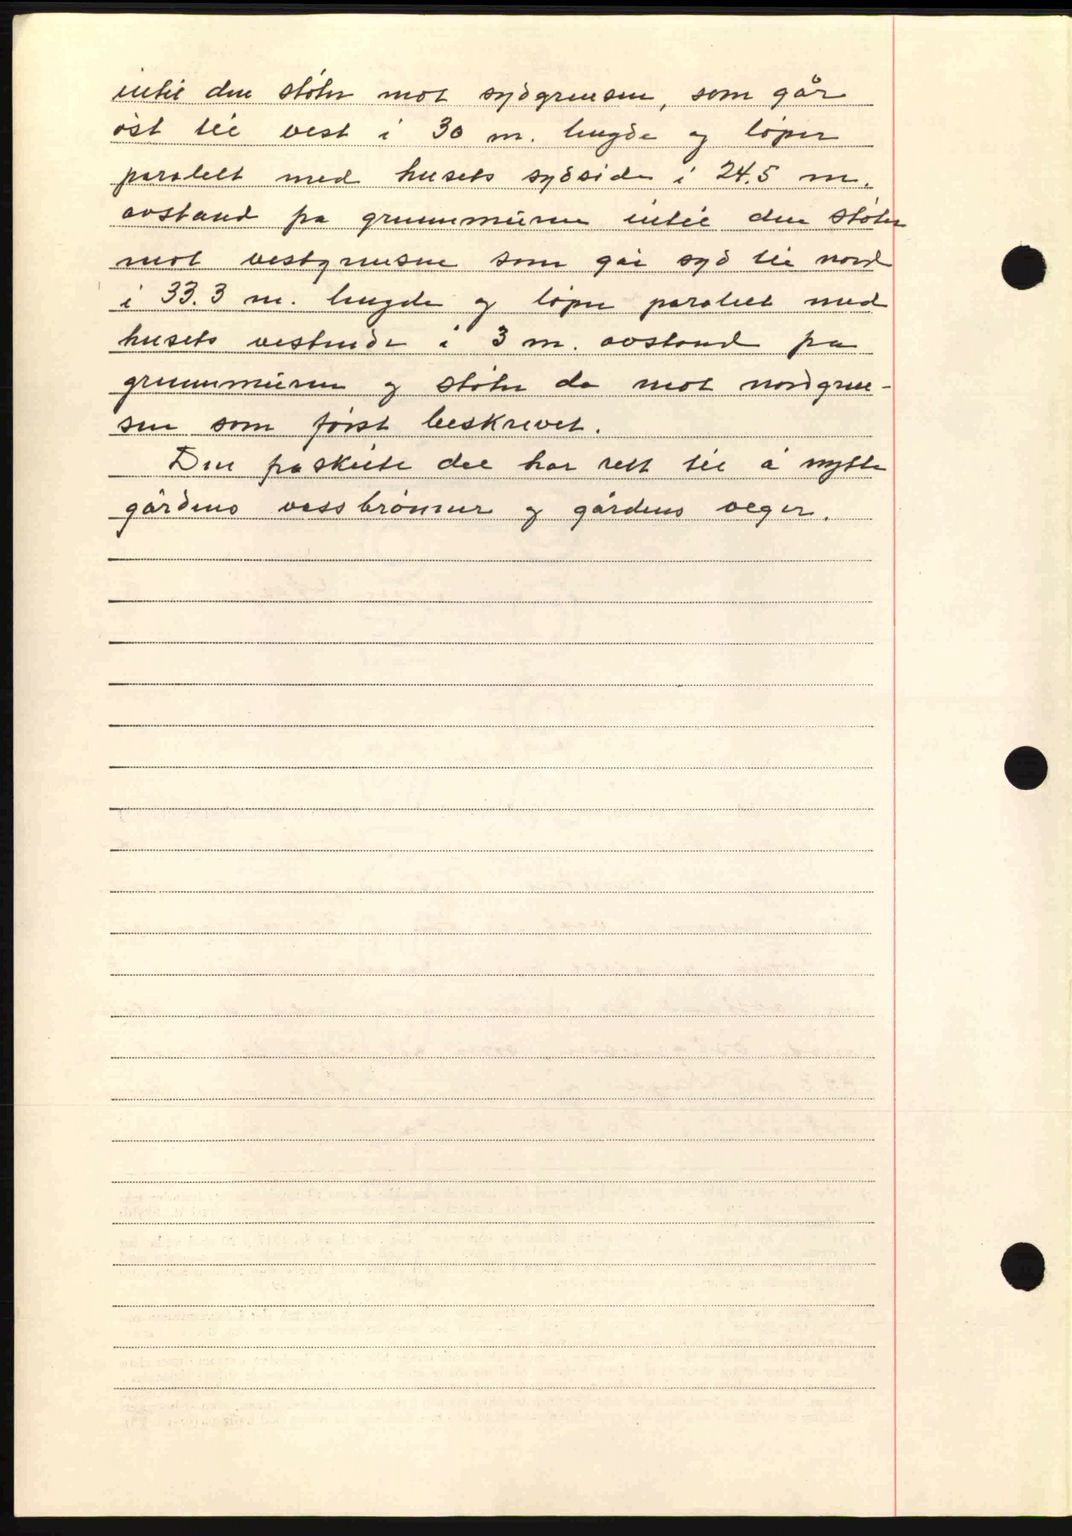 intil den støter mot sydgrensen, som går
øst til vest i 30 m. lengde og løper
paralelt med husets sydside i 24.5 m.
avstand fra grunnmuren intil den støter
mot vestgrensen som går syd til nord
i 33.3 m. lengde og løper paralelt med
husets vestside i 3 m. avstand fra
grunnmuren og støter da mot nordgren-
sen som først beskrevet.
Den fraskilte del har rett til å nytte
gårdens vassbrønner og gårdens veger.